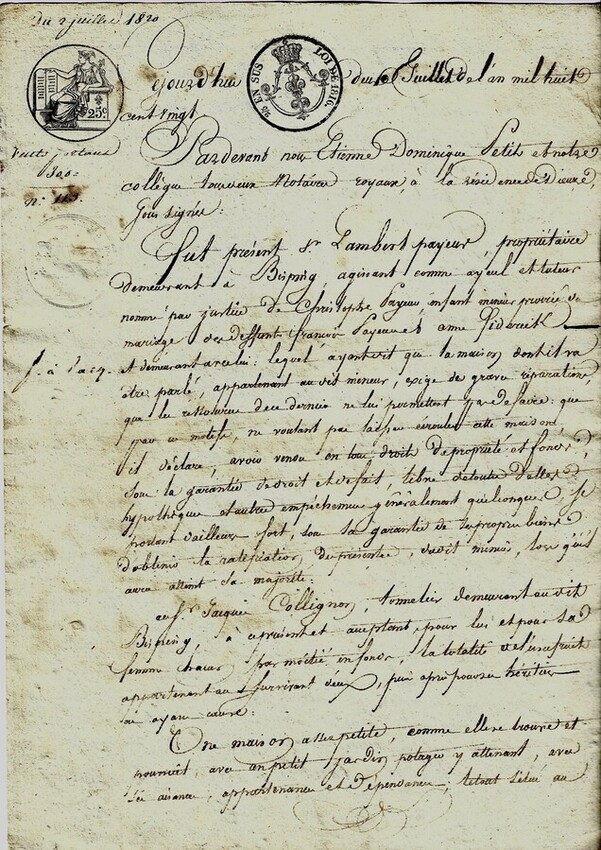 Du 2 juillet 1820
25c
25 EN SUS LOI DE 1816
jourd'hui deux Juillet de l'an mil huit
cent vingt
300=
n°. 115.
Pardevant nous Etienne Dominique Petit et notre
collègue soussignés Notaires royaux, à la résidence de Dieuze,
soussignés:
fut présent Sr. Lambert payeur, propriétaire
demeurant à Bisping, agissant comme ayeul et tuteur
nommé par justice de Christophe Payeur, enfant mineur procréé du
mariage des deffunt françois Payeur et anne
f. à l'acq.
et demeurant avec lui: lequel ayant dit que la maison dont il va
être parlé, appartenant au dit mineur, exige de graves réparations
que les ressources de ce dernier ne lui permettent pas de faire: que
par ce motif, ne voulant pas laisser écrouler cette maison,
il déclare, avoir vendu en tout droit de propriété et fonds,
sous la garantie de droit et de fait, libre de toutes dettes,
hypothèque et autres empêchemens généralement quelconques, se
portant d'ailleurs fort, sous la garantie de ses propres biens
d'obtenir la ratification des présentes, du dit mineur, lors qu'il
aura atteint sa majorité:
au Sr. Jacques Collignon, tonnelier demeurant au dit
Bisping, à ce présent et acceptant pour lui et pour sa
femme chacun par moitié en fonds, la totalité de l'usufruit
appartenant au survivant d'eux, puis après pour ses héritiers
ou ayans cause:
Une maison assez petite, comme elle se trouve et
pourvoit avec un petit jardin potager y attenant, avec
ses aisances, appartenances et dépendances, le tout situé au